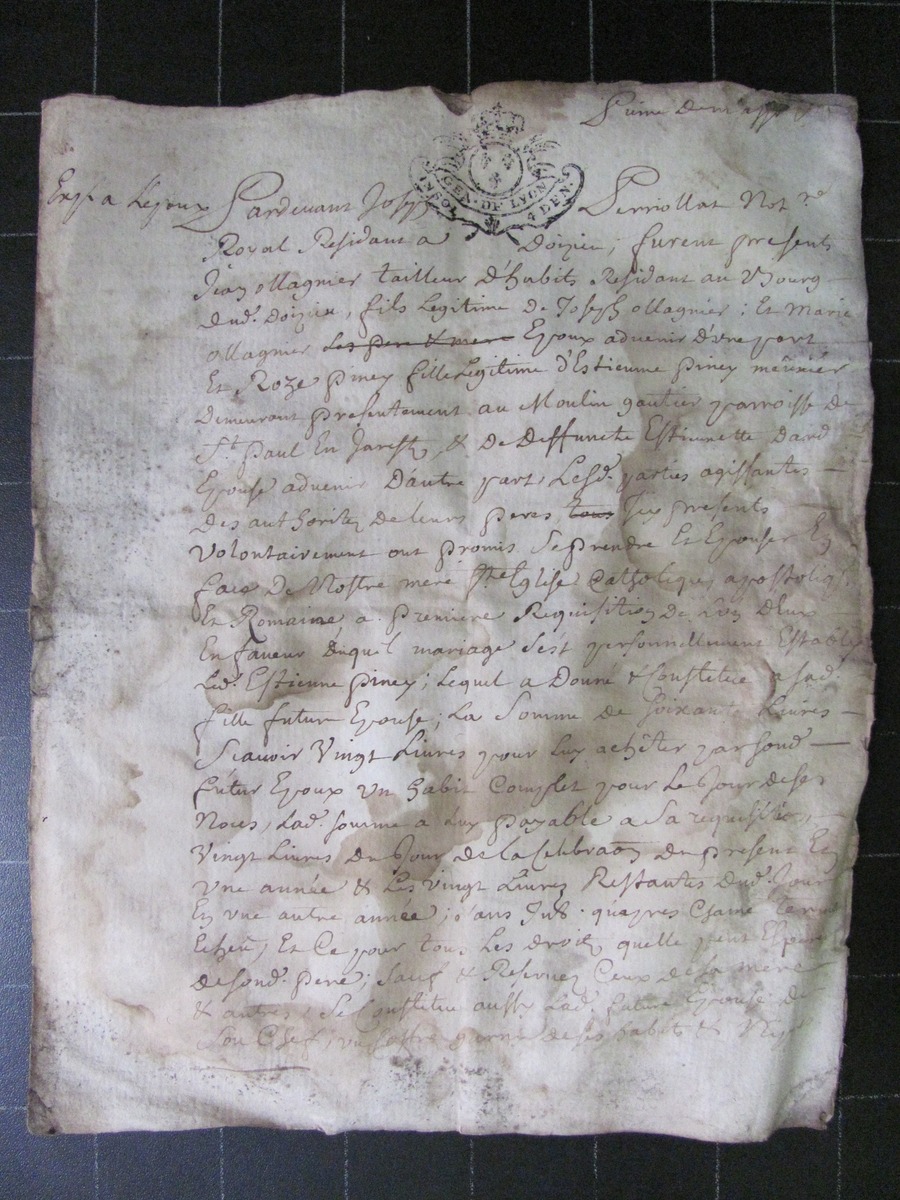 GEN. DE LYON
4 DEN.
Exp. a Lepoux
Pardevant Joseph Perriollat Not.re
Royal Residant a Doizieu ; furent presents
Jean ollagnier tailleur d'habits Residant au Bourg
dud. Doizieu, fils Legitime De Joseph ollagnier ; Et Marie
ollagnier Les pere & mere Epoux advenir d'vne part
Et Roze piney fille Legitime d'Estienne piney meûnier
Demeurant presentement au Moulin gautier parroisse de
St. paul En Jarest, & de Deffuncte Estiennette dard
Epouse advenir D'autre part, Lesd. parties agissantes
Des authoritez de leurs peres, tous Jcy presents
Volontairement ont promis Se prendre Et Epouser En
face De Nostre mere Ste. Eglise Catholique, apostolique
Et Romaine a premiere Requisition De L'un d'Eux
En faveur duquel mariage s'est personnellement Estably
Led. Estienne piney ; Lequel a Donné & Constitué a sad.
fille future Epouse ; La Somme de Soixante Livres
Scavoir Vingt Livres pour Luy achêter par sond.
futur Epoux vn habit Complet pour Le Jour de ses
Noces, Lad. somme a Luy payable a Sa requisition,
Vingt Livres Du Jour de la Celebraon Du present En
vne année & Les vingt Livres Restantes Dud. Jour
En vne autre année ; sans Jnt. qu'apres Chaque terme
Echeu, Et Ce pour tous Les droits quelle peut Esperer
de sond. pere ; Sauf & Reservez Ceux de sa mere
& autres, Se Constitue aussy Lad. future Epouse de
son Chef, vn Coffre garny de ses habits &